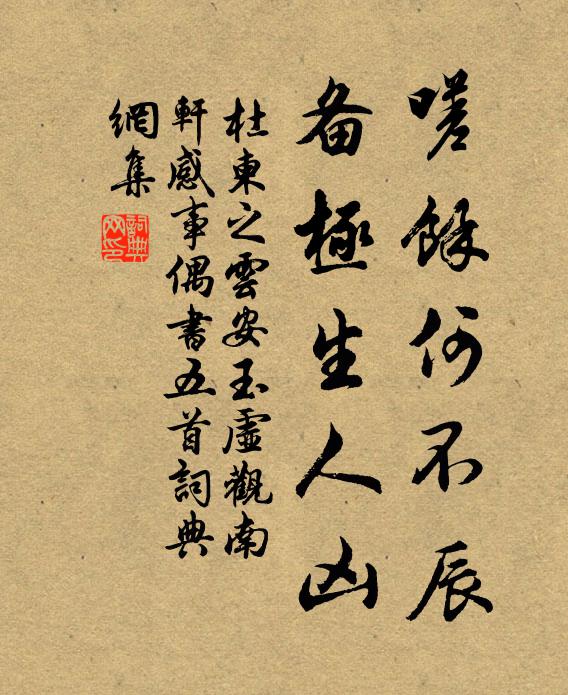 嗟餘何不辰
备極生人凶
杜東之雲安玉虛觀南
軒感事偶書五首詞典
網集
詞典网印